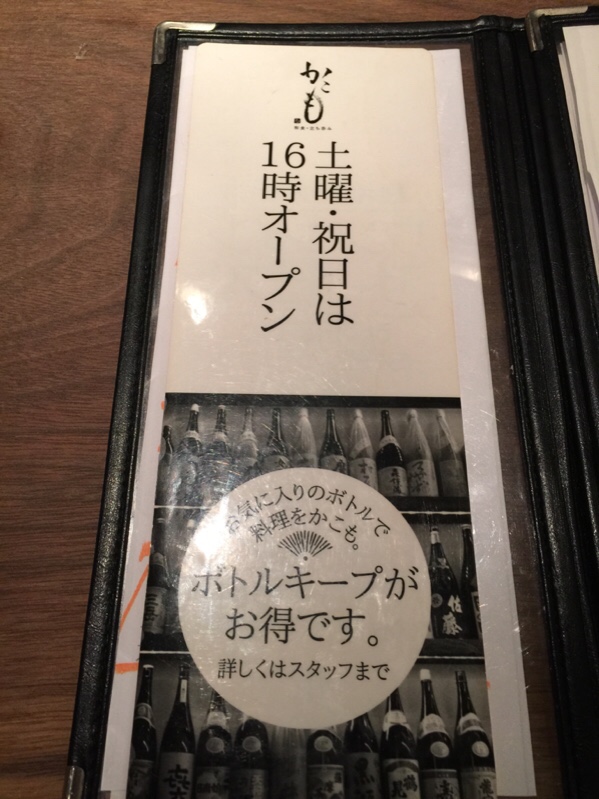 かこも
和食・立ち呑み
土曜・祝日は
16時オープン
お気に入りのボトルで
料理をかこも。
ボトルキープが
お得です。
詳しくはスタッフまで
佐藤